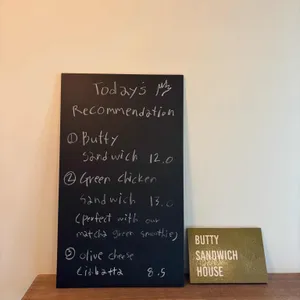 Today's
Recommendation
① Butty
sandwich 12.0
② Green chicken
sandwich 13.0
(perfect with our
matcha green smoothie)
③ olive cheese
Ciabatta 8.5
BUTTY
SANDWICH
HOUSE